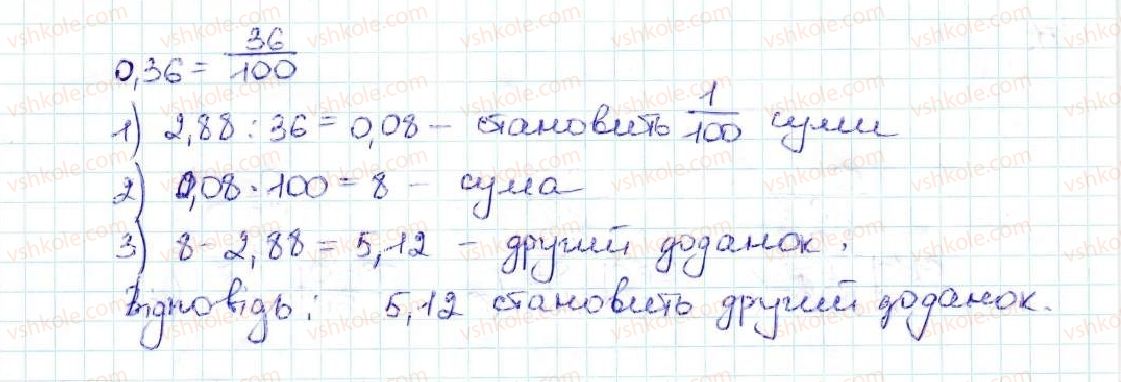 0,36 = 36/100
1) 2,88 : 36 = 0,08 – становить 1/100 суми
2) 0,08 · 100 = 8 – сума
3) 8 - 2,88 = 5,12 – другий доданок.
Відповідь: 5,12 становить другий доданок.